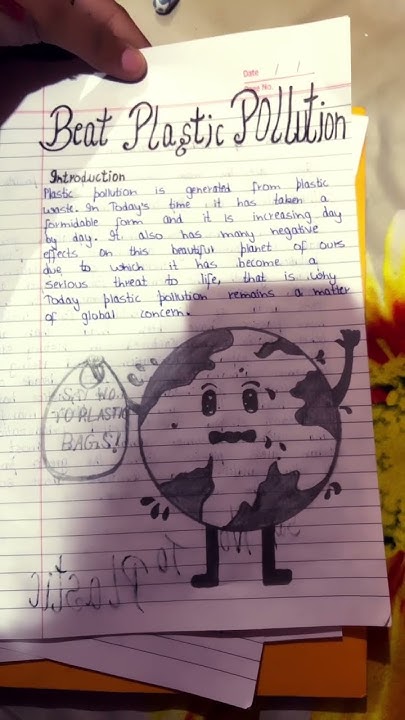 Date / /
Page No.
Beat Plastic Pollution
Introduction
Plastic pollution is generated from plastic
waste. In Today's time it has taken a
formidable form and it is increasing day
by day. It also has many negative
effects on this beautiful planet of ours
due to which it has become a
serious threat to life, that is why
Today plastic pollution remains a matter
of global concern.
SAY NO
TO PLASTIC
BAGS!
No
To Plastic